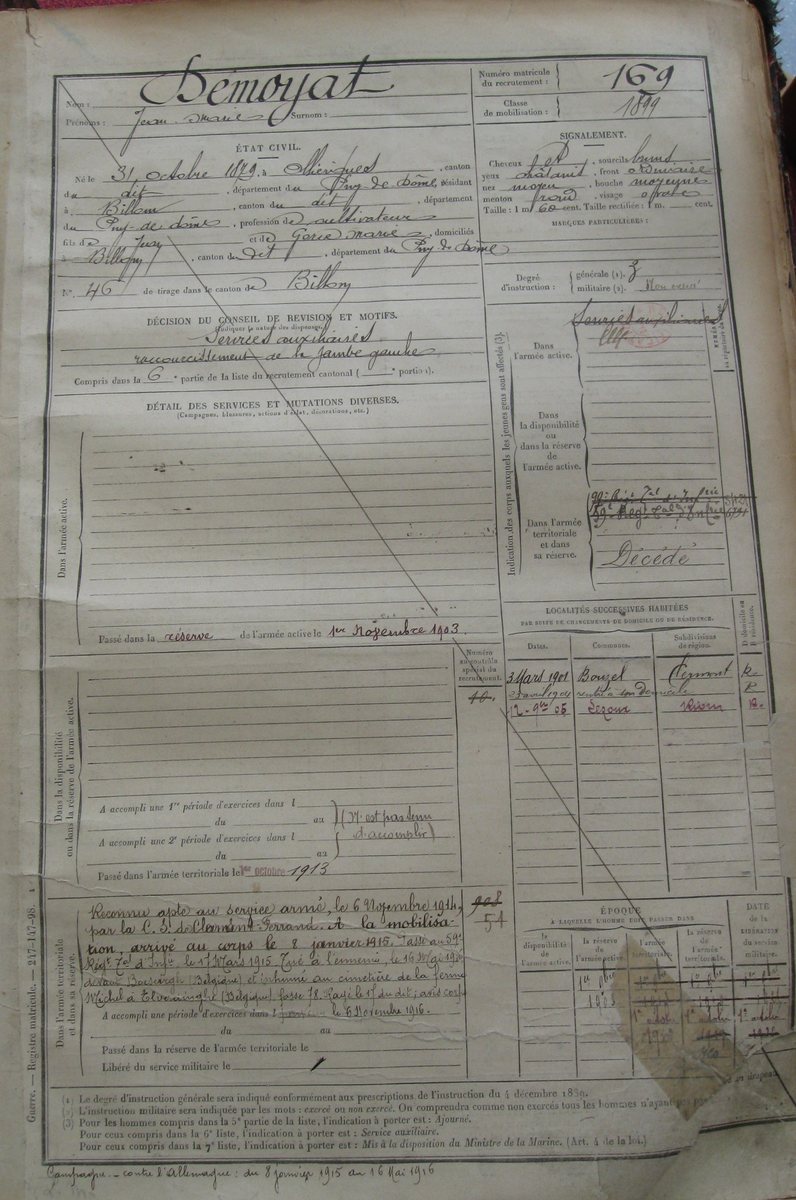 Demoyat
Nom :
Prénoms : Jean Marie Surnom :
Numéro matricule
du recrutement : 169
Classe
de mobilisation : 1899
ÉTAT CIVIL.
Né le 31 octobre 1879, à , canton
du dit , département du Puy de Dôme, résidant
à Billom , canton du dit , département
du Puy-de-dôme, profession de cultivateur
fils de Jean et de Marie , domiciliés
à Billom , canton du Dit , département du Puy de Dôme
N° 46 de tirage dans le canton de Billom
SIGNALEMENT.
Cheveux et , sourcils bruns
yeux châtains , front ordinaire
nez moyen , bouche moyenne
menton rond , visage ovale
Taille : 1 m. 60 cent. Taille rectifiée : 1 m. cent.
MARQUES PARTICULIÈRES :
Degré
d'instruction :
générale (1). 3
militaire (2). Non exercé
DÉCISION DU CONSEIL DE REVISION ET MOTIFS.
(Indiquer la nature des dispenses.)
Services auxiliaires
raccourcissement de la jambe gauche
Compris dans la 6e partie de la liste du recrutement cantonal ( e portion).
DÉTAIL DES SERVICES ET MUTATIONS DIVERSES.
(Campagnes, blessures, actions d'éclat, décorations, etc.)
Dans l'armée active.
Passé dans la réserve de l'armée active le 1er Novembre 1903.
Indication des corps auxquels les jeunes gens sont affectés (3).
Dans
l'armée active.
Services auxiliaires
Dans
la disponibilité
ou
dans la réserve
de
l'armée active.
Dans l'armée
territoriale
et dans
sa réserve.
Décédé
LOCALITÉS SUCCESSIVES HABITÉES
PAR SUITE DE CHANGEMENTS DE DOMICILE OU DE RÉSIDENCE.
Dates. Communes. Subdivisions
de région. D domicile ou
R résidence.
3 Mars 1901 Bouzel Clermont R.
avril 1904 rentré à son Domicile
12-9bre 05 Lezoux Riom R.
Numéro
au contrôle
spécial du
recrutement.
Dans la disponibilité
ou dans la réserve de l'armée active.
A accompli une 1re période d'exercices dans l
du au
(N'est pas tenu
d'accomplir)
A accompli une 2e période d'exercices dans l
du au
Passé dans l'armée territoriale le 1er octobre 1913
Dans l'armée territoriale
et dans sa réserve.
Reconnu apte au service armé, le 6 Novembre 1914, 908
par la C. S. de Clermont-Ferrand. A la mobilisa- 54
tion, arrivé au corps le 8 janvier 1915. Passé au 59e
Régt Tal d'Infie le 17 Mars 1915. Tué à l'ennemi, le 16 Mai 1916
devant (Belgique) et inhumé au cimetière de la ferme
Michel à (Belgique) fosse 78. Rayé le 17 du dit ; avis
A accompli une période d'exercices dans l le 6 Novembre 1916.
du au
Passé dans la réserve de l'armée territoriale le
Libéré du service militaire le
ÉPOQUE
À LAQUELLE L'HOMME DOIT PASSER DANS
DATE
de la
LIBÉRATION
du service
militaire.
la
disponibilité
de
l'armée active.
la réserve
de
l'armée active.
l'armée
territoriale.
la réserve
de
l'armée
territoriale.
(1) Le degré d'instruction générale sera indiqué conformément aux prescriptions de l'instruction du 4 décembre 1889.
(2) L'instruction militaire sera indiquée par les mots : exercé ou non exercé. On comprendra comme non exercés tous les hommes n'ayant
(3) Pour les hommes compris dans la 5e partie de la liste, l'indication à porter est : Ajourné.
Pour ceux compris dans la 6e liste, l'indication à porter est : Service auxiliaire.
Pour ceux compris dans la 7e liste, l'indication à porter est : Mis à la disposition du Ministre de la Marine. (Art. 4 de la loi.)
Guerre. — Registre matricule. — 217-147-98.
Campagne — contre l'Allemagne : du 8 janvier 1915 au 16 Mai 1916